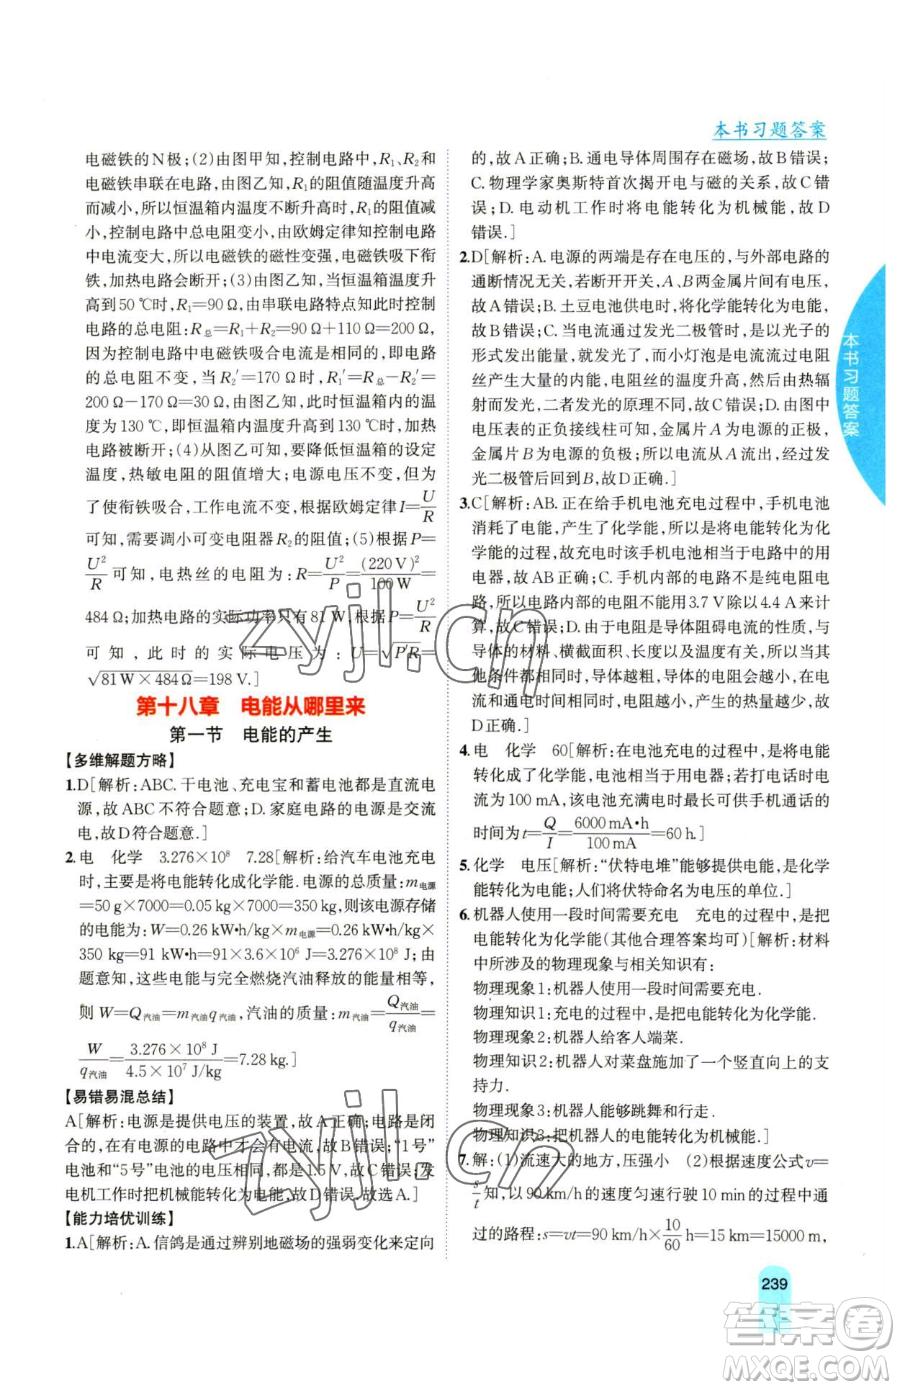 本书习题答案
电磁铁的N极;(2)由图甲知,控制电路中,R₁、R₂和
电磁铁串联在电路,由图乙知,R₁的阻值随温度升高
而减小,所以恒温箱内温度不断升高时,R₁的阻值减
小,控制电路中总电阻变小,由欧姆定律知控制电路
中电流变大,所以电磁铁的磁性变强,电磁铁吸下衔
铁,加热电路会断开;(3)由图乙知,当恒温箱温度升
高到50 ℃时,R₁=90 Ω,由串联电路特点知控制
电路的总电阻:R总=R₁+R₂=90 Ω+110 Ω=200 Ω,
因为控制电路中电磁铁吸合电流是相同的,即电路
的总电阻不变,当R₂′=170 Ω时,R₁′=R总-R₂′=
200 Ω-170 Ω=30 Ω,由图乙知此时恒温箱内的温
度为130 ℃,即当温度升高到130 ℃时,加热
电路被断开;(4)由图乙可知,要降低恒温箱的设定
温度,热敏电阻的阻值增大;电源电压不变,
要使衔铁吸合,工作电流不变,根据欧姆定律I=U/R
可知,需要调小变阻器R₂的阻值;(5)根据P=
U²/R可知,电热丝的电阻为:R=U²/P=(220 V)²/100 W=
484 Ω;加热电路的实际功率只有81 W,根据P=U²/R
可知,此时的实际电压为:U=√PR=
√81 W×484 Ω=198 V.]
第十八章 电能从哪里来
第一节 电能的产生
【多维解题方略】
1.D[解析:ABC.干电池、充电宝和蓄电池都是直流电
源,故ABC不符合题意;D.家庭电路的电源是交流
电,故D符合题意.]
2.电 化学 3.276×10⁸ 7.28[解析:给汽车电池充电
时,主要是将电能转化成化学能.电源的总质量:m电源
=50 g×7000=0.05 kg×7000=350 kg,则该电源存储
的电能为:W=0.26 kW·h/kg×m电源=0.26 kW·h/kg×
350 kg=91 kW·h=91×3.6×10⁶ J=3.276×10⁸ J;由
题意知,这些电能与完全燃烧汽油释放的能量相等,
则W=Q汽油=m汽油q汽油,汽油的质量:m汽油=Q汽油/q汽油=
W/q汽油=3.276×10⁸ J/4.5×10⁷ J/kg=7.28 kg.]
【易错易混总结】
A[解析:电源是提供电压的装置,故A正确;电路是闭
合的,在有电源的电路中才会有电流,故B错误;“1号”
电池和“5号”电池的电压相同,都是1.5 V,故C错误;发
电机工作时把机械能转化为电能,故D错误,故选A.]
【能力培优训练】
1.A[解析:A.信鸽是通过辨别地磁场的强弱变化来定向
的,故A正确;B.通电导体周围存在磁场,故B错误;
C.物理学家奥斯特首次揭开电与磁的关系,故C错
误;D.电动机工作时将电能转化为机械能,故D
错误.]
2.D[解析:A.电源的两端是存在电压的,与外部电路的
通断情况无关,若断开开关,A、B两金属片间有电压,
故A错误;B.土豆电池供电时,将化学能转化为电能,
故B错误;C.当电流通过发光二极管时,是以光子的
形式发出能量,故发光;而小灯泡是电流流过电阻
丝产生大量的内能,电阻丝的温度升高,自然产生热辐
射发光,二者发光的原理不同,故C错误;D.由图中
电压表的正负接线柱可知,金属片A为电源的正极,
金属片B为电源的负极;所以电流从A流出,经过发
光二极管后回到B,故D正确.]
3.C[解析:AB.正在给手机电池充电过程中,手机电池
消耗了电能,产生了化学能,所以是将电能转化为化
学能的过程,故充电时该手机电池相当于电路中的用
电器,故AB错误;C.手机内部的电路不是纯电阻电
路,所以电路内部的电阻不能用3.7 V除以4.4 A来计
算,故C正确;D.由于电阻是导体阻碍电流的性质,与
导体的材料、横截面积、长度以及温度有关,所以在其
他条件都相同时,导体越粗,电阻越小,产生的热量越
少,故D错误.]
4.电 化学 60[解析:在电池充电的过程中,是将电能
转化成了化学能,若使用时的平均电流
为100 mA,该电池充满电时最长可供手机通话的
时间为t=Q/I=6000 mA·h/100 mA=60 h.]
5.化学 电压[解析:“伏特电堆”能够提供电能,是化学
能转化为电能;人们将伏特命名为电压的单位.]
6.机器人使用一段时间需要充电 充电的过程中,是把
电能转化为化学能(其他合理答案均可)[解析:材料
中所涉及的物理现象与相关知识有:
物理现象1:机器人使用一段时间需要充电.
物理知识1:充电的过程中,是把电能转化为化学能.
物理现象2:机器人给客人端菜.
物理知识2:机器人对菜盘施加了一个竖直向上的支
持力.
物理现象3:机器人能够跳舞和行走.
物理知识3:把机器人的电能转化为机械能.]
7.解:(1)流速大的地方,压强小 (2)根据速度公式v=
s/t知,以90 km/h的速度匀速行驶10 min的过程中通
过的路程:s=vt=90 km/h×10/60 h=15 km=15000 m,
本书习题答案
239
zyjl.cn
zyjl.cn
答案圈
MXQE.COM